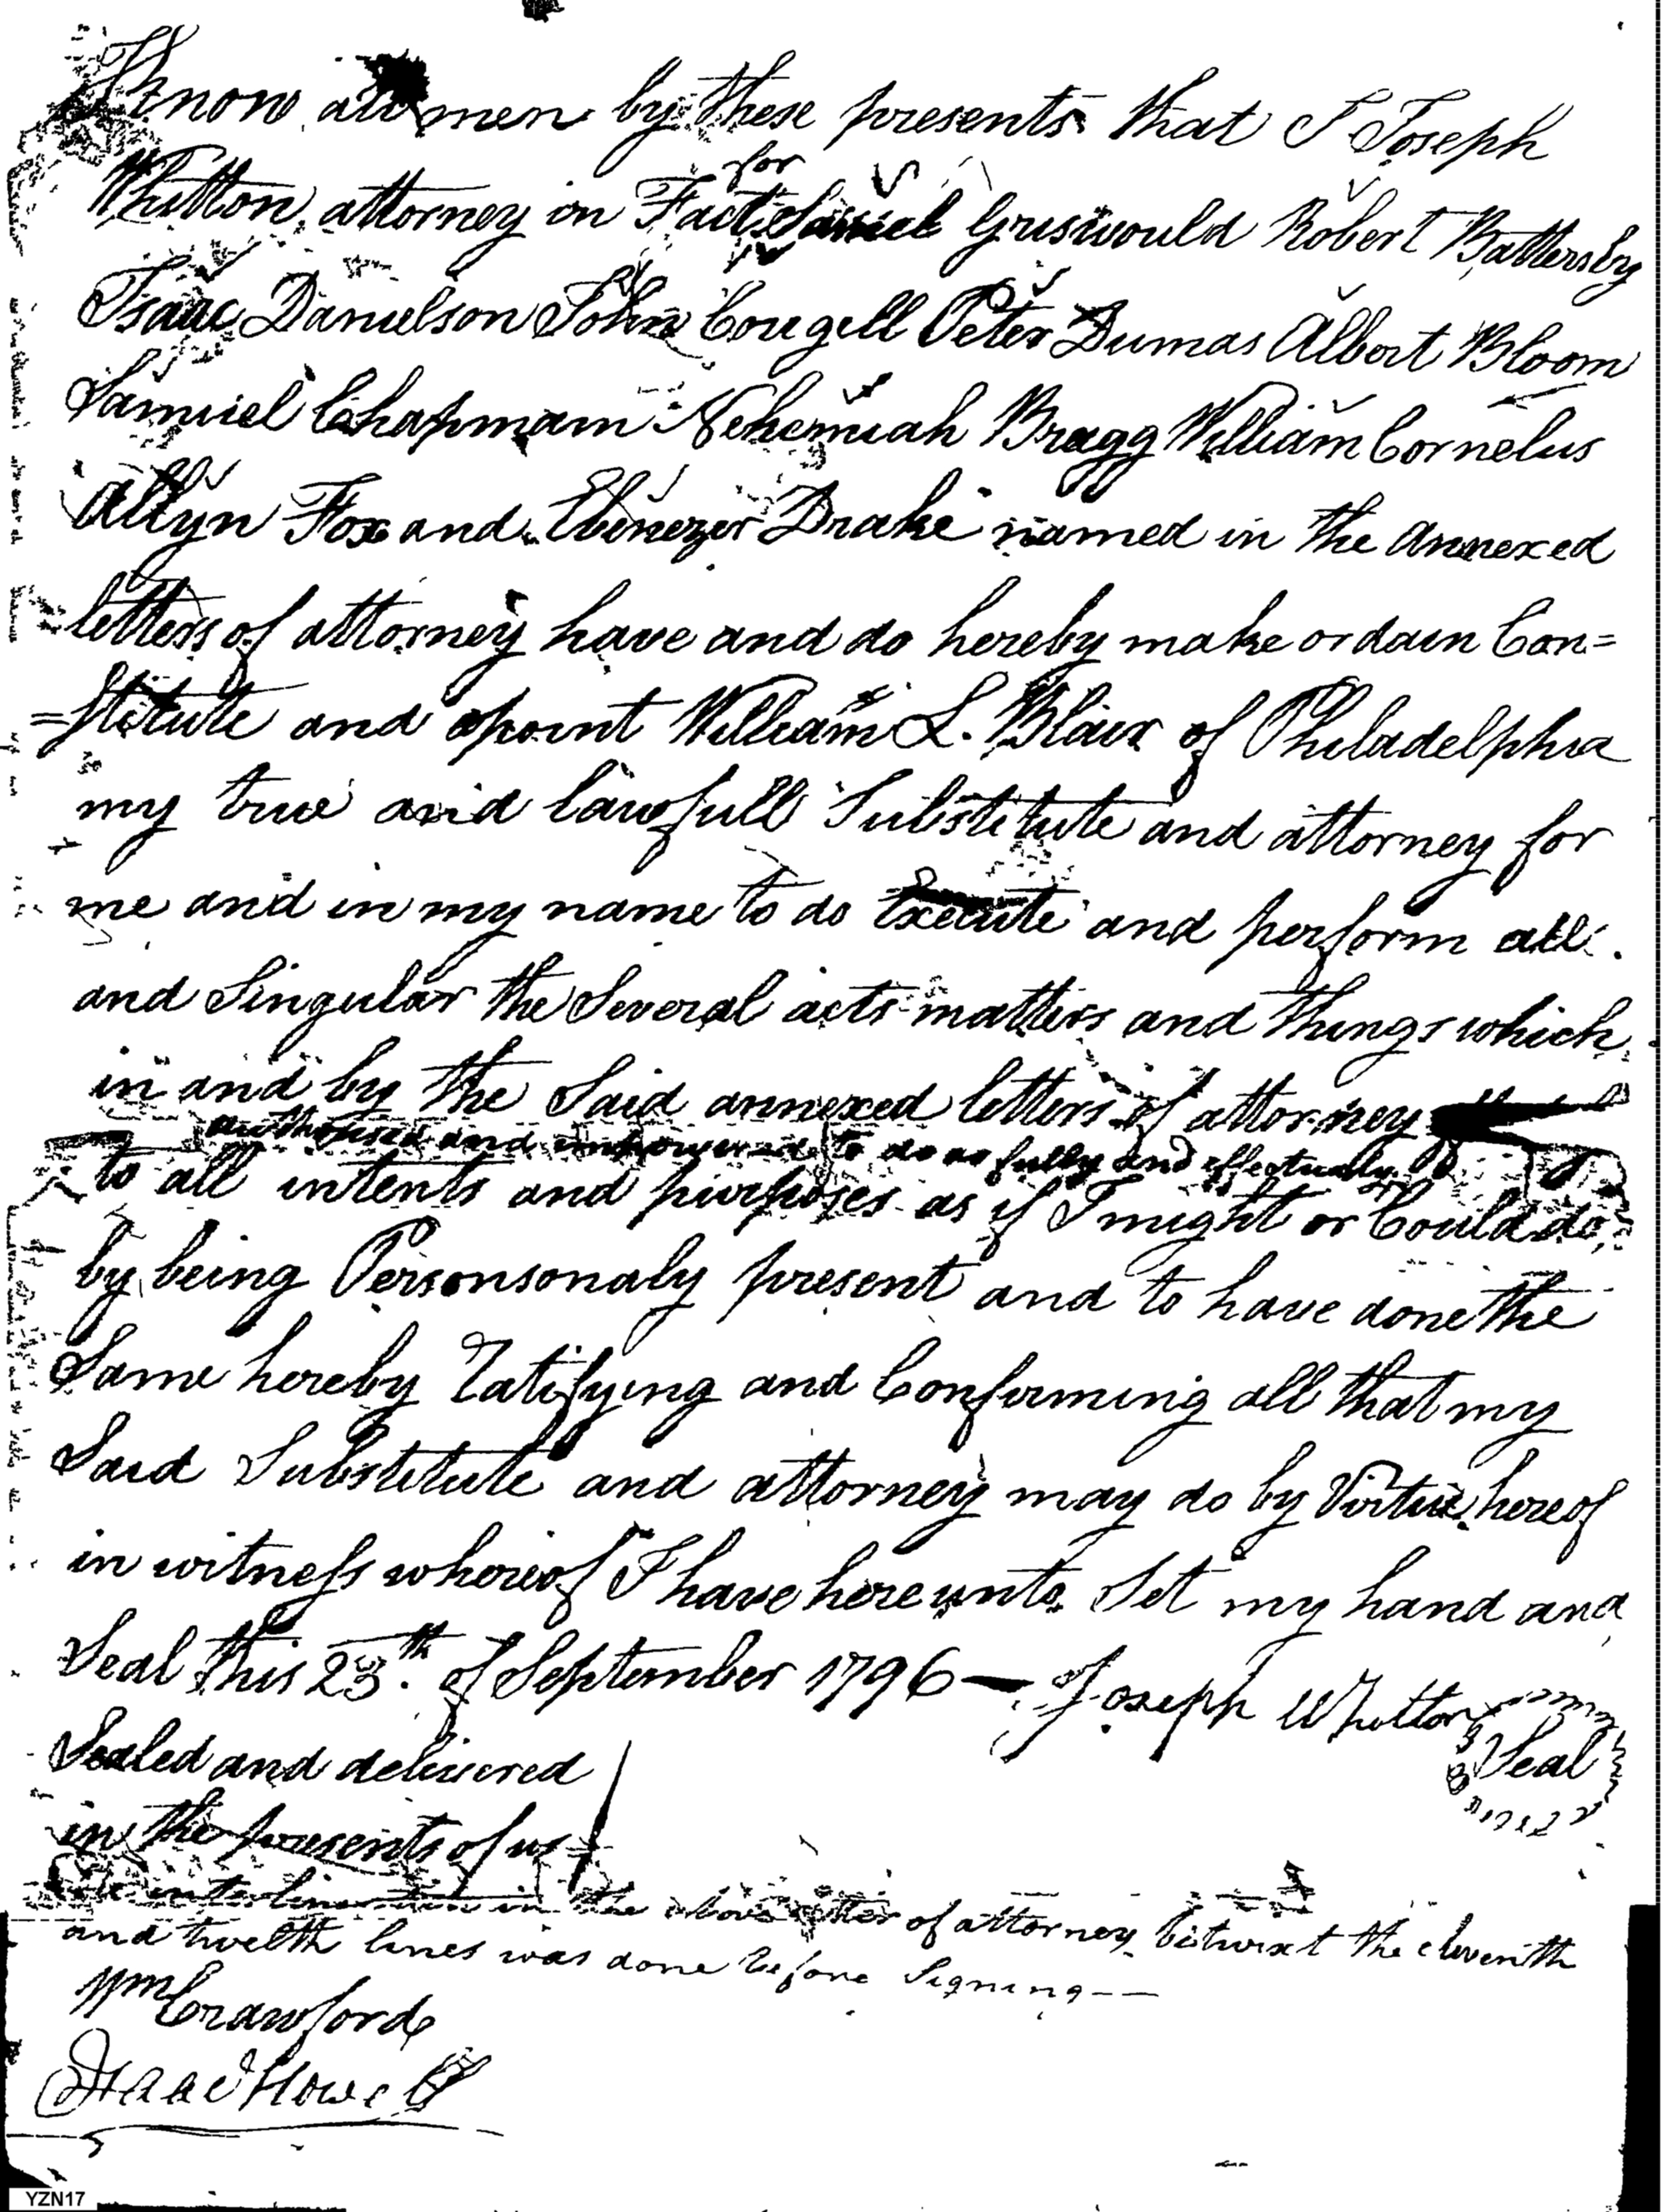 Know all men by these presents that I Joseph
Whitton, attorney in Fact for Daniel Griswould Robert Battersby
Isaac Danielson John Cougell Peter Dumas Albert Bloom
Samuel Chapmam Nehemiah Bragg William Cornelus
Allyn Fox and Ebenezer Drake named in the annexed
letters of attorney have and do hereby make ordain Con=
=stitute and apoint William L. Blair of Philadelphia
my true and lawfull Substitute and attorney for
me and in my name to do Execute and perform all
and Singular the Several acts matters and things which
in and by the Said annexed letters of attorney
authorised and impowered to do as fully and effectually
to all intents and purposes as if I might or Could do
by being Personsonaly present and to have done the
Same hereby Ratifying and Confirming all that my
Said Substitute and attorney may do by Virtue hereof
in witness whereof I have hereunto Set my hand and
Seal this 23th of September 1796 — Joseph Whitton
Seal
Sealed and delivered
in the presents of us
interlineation in the above letter of attorney betwixt the eleventh
and twelth lines was done before Signing——
Wm Crawford
Isaac Howell
YZN17